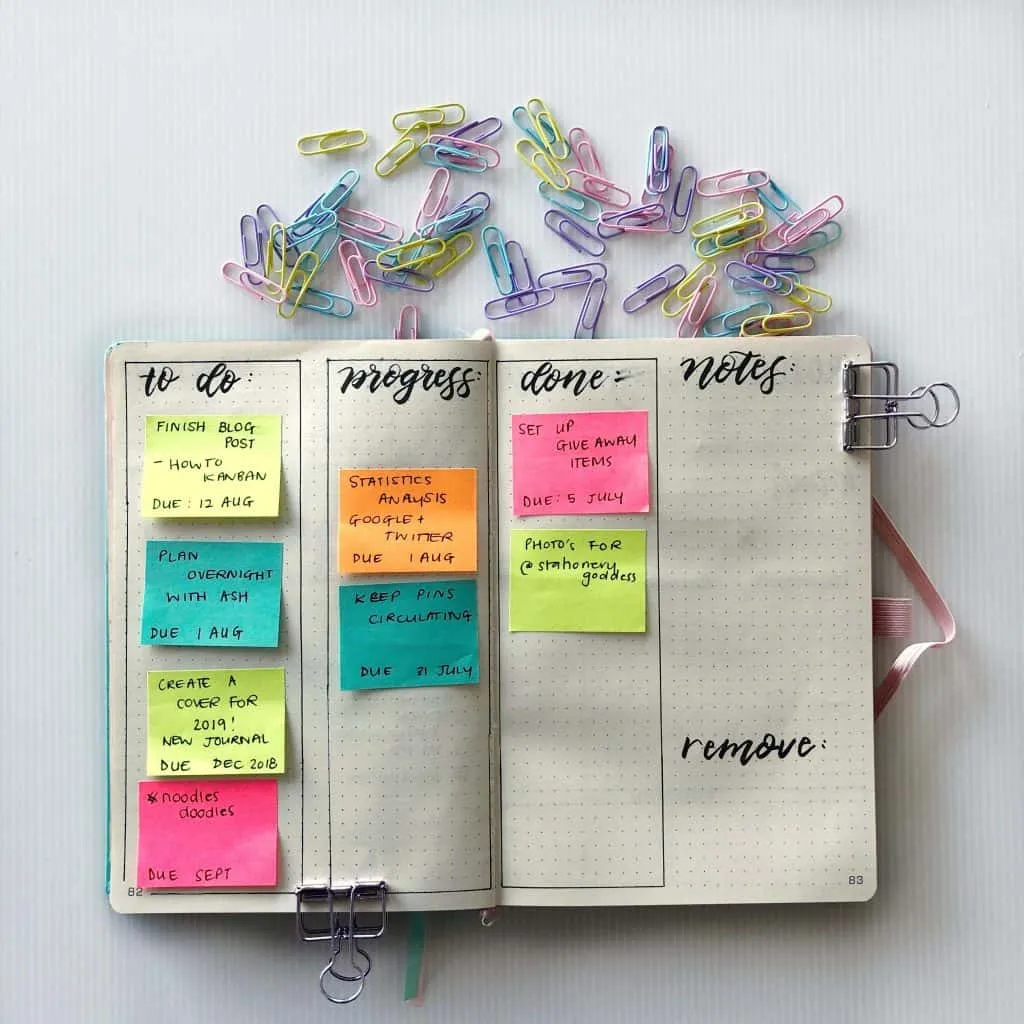 to do:
FINISH BLOG
POST
- HOW TO
KANBAN
DUE: 12 AUG
PLAN
OVERNIGHT
WITH ASH
DUE 1 AUG
CREATE A
COVER FOR
2019!
NEW JOURNAL
DUE DEC 2018
* noodles
doodles
DUE SEPT
82
progress:
STATISTICS
ANALYSIS
GOOGLE +
TWITTER
DUE 1 AUG
KEEP PINS
CIRCULATING
DUE 31 JULY
done:
SET UP
GIVE AWAY
ITEMS
DUE: 5 JULY
PHOTO'S FOR
@stationery
goddess
notes:
remove:
83